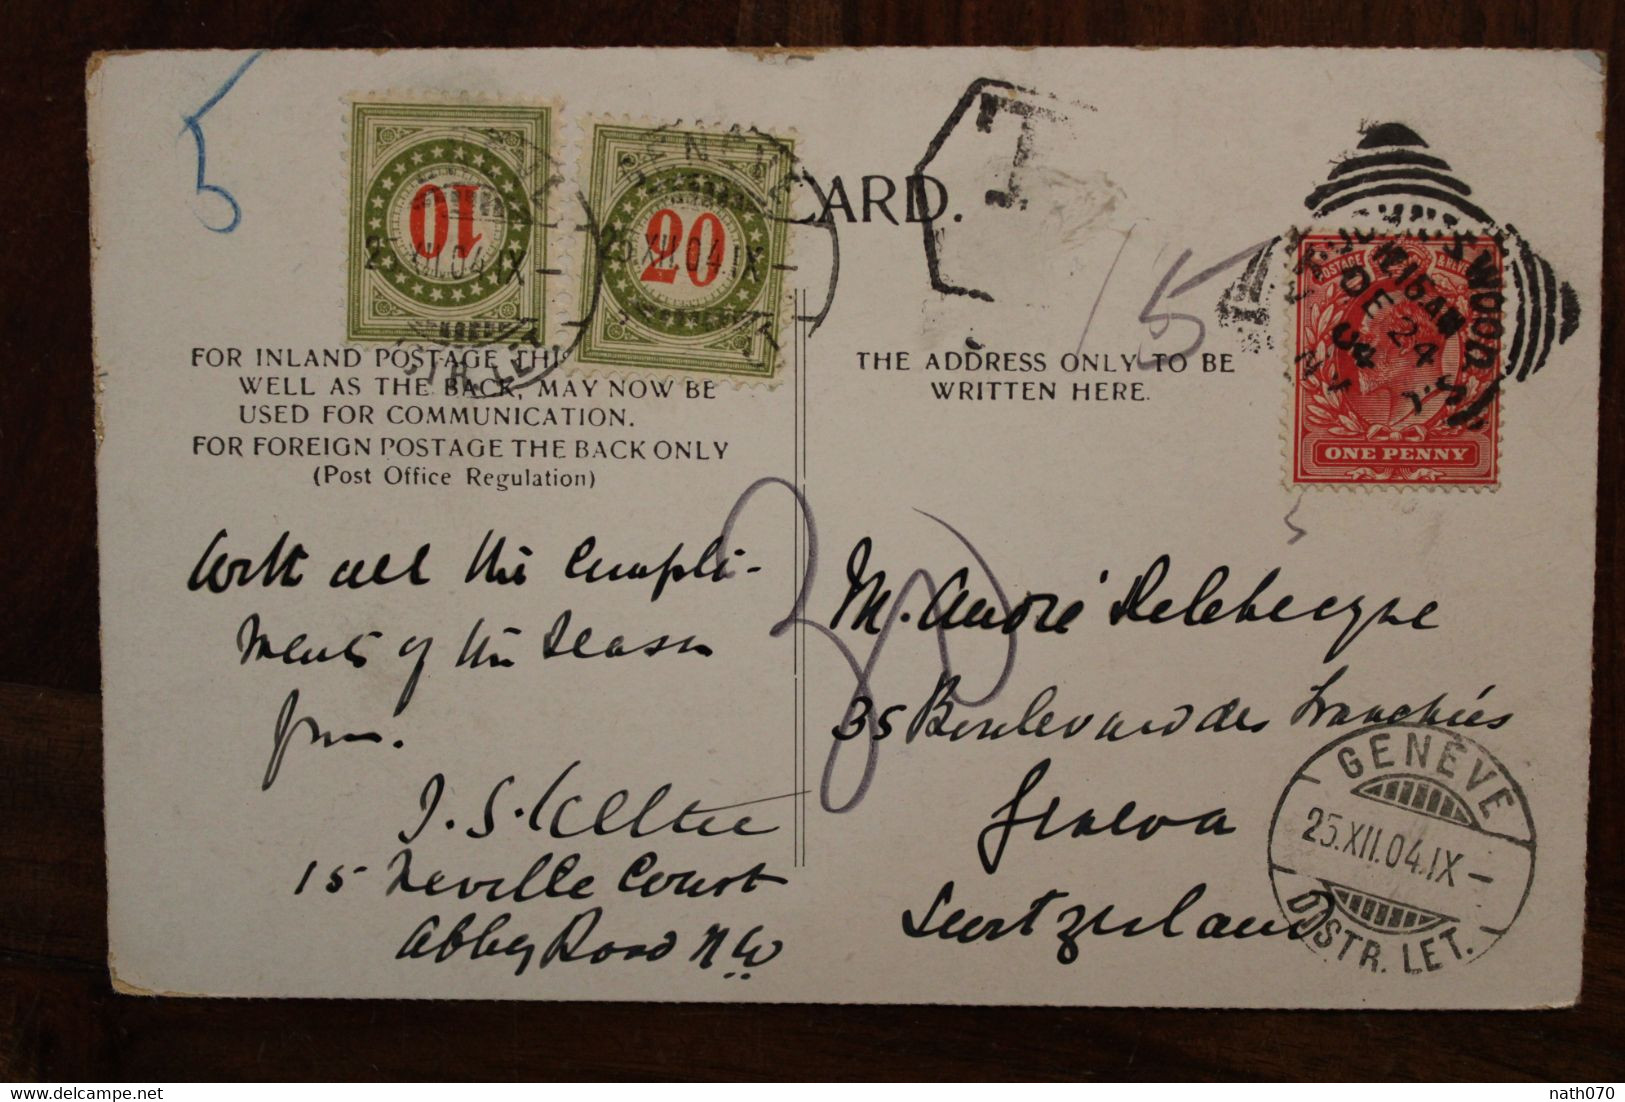 5
10
20
GENÈVE
25.XII.04.IX
DISTR. LET.
T
CARD.
15
ST. JOHN'S WOOD
DE 24
04
POSTAGE & REVENUE
ONE PENNY
FOR INLAND POSTAGE THI
WELL AS THE BACK, MAY NOW BE
USED FOR COMMUNICATION.
FOR FOREIGN POSTAGE THE BACK ONLY
(Post Office Regulation)
THE ADDRESS ONLY TO BE
WRITTEN HERE.
30
With all the Compli-
ments of the Season
from.
J. S. Keltie
15 Neville Court
Abbey Road N W
M. André Delebecque
35 Boulevard des Tranchées
Geneva
Switzerland
GENÈVE
25.XII.04.IX
DISTR. LET.
nath070